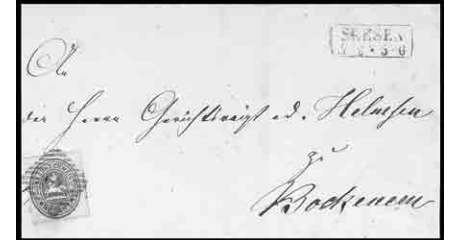 SEESEN
7 2 • 5-6
An
den Herrn Gerichtsvoigt ad. Helmsen
zu
Bockenem